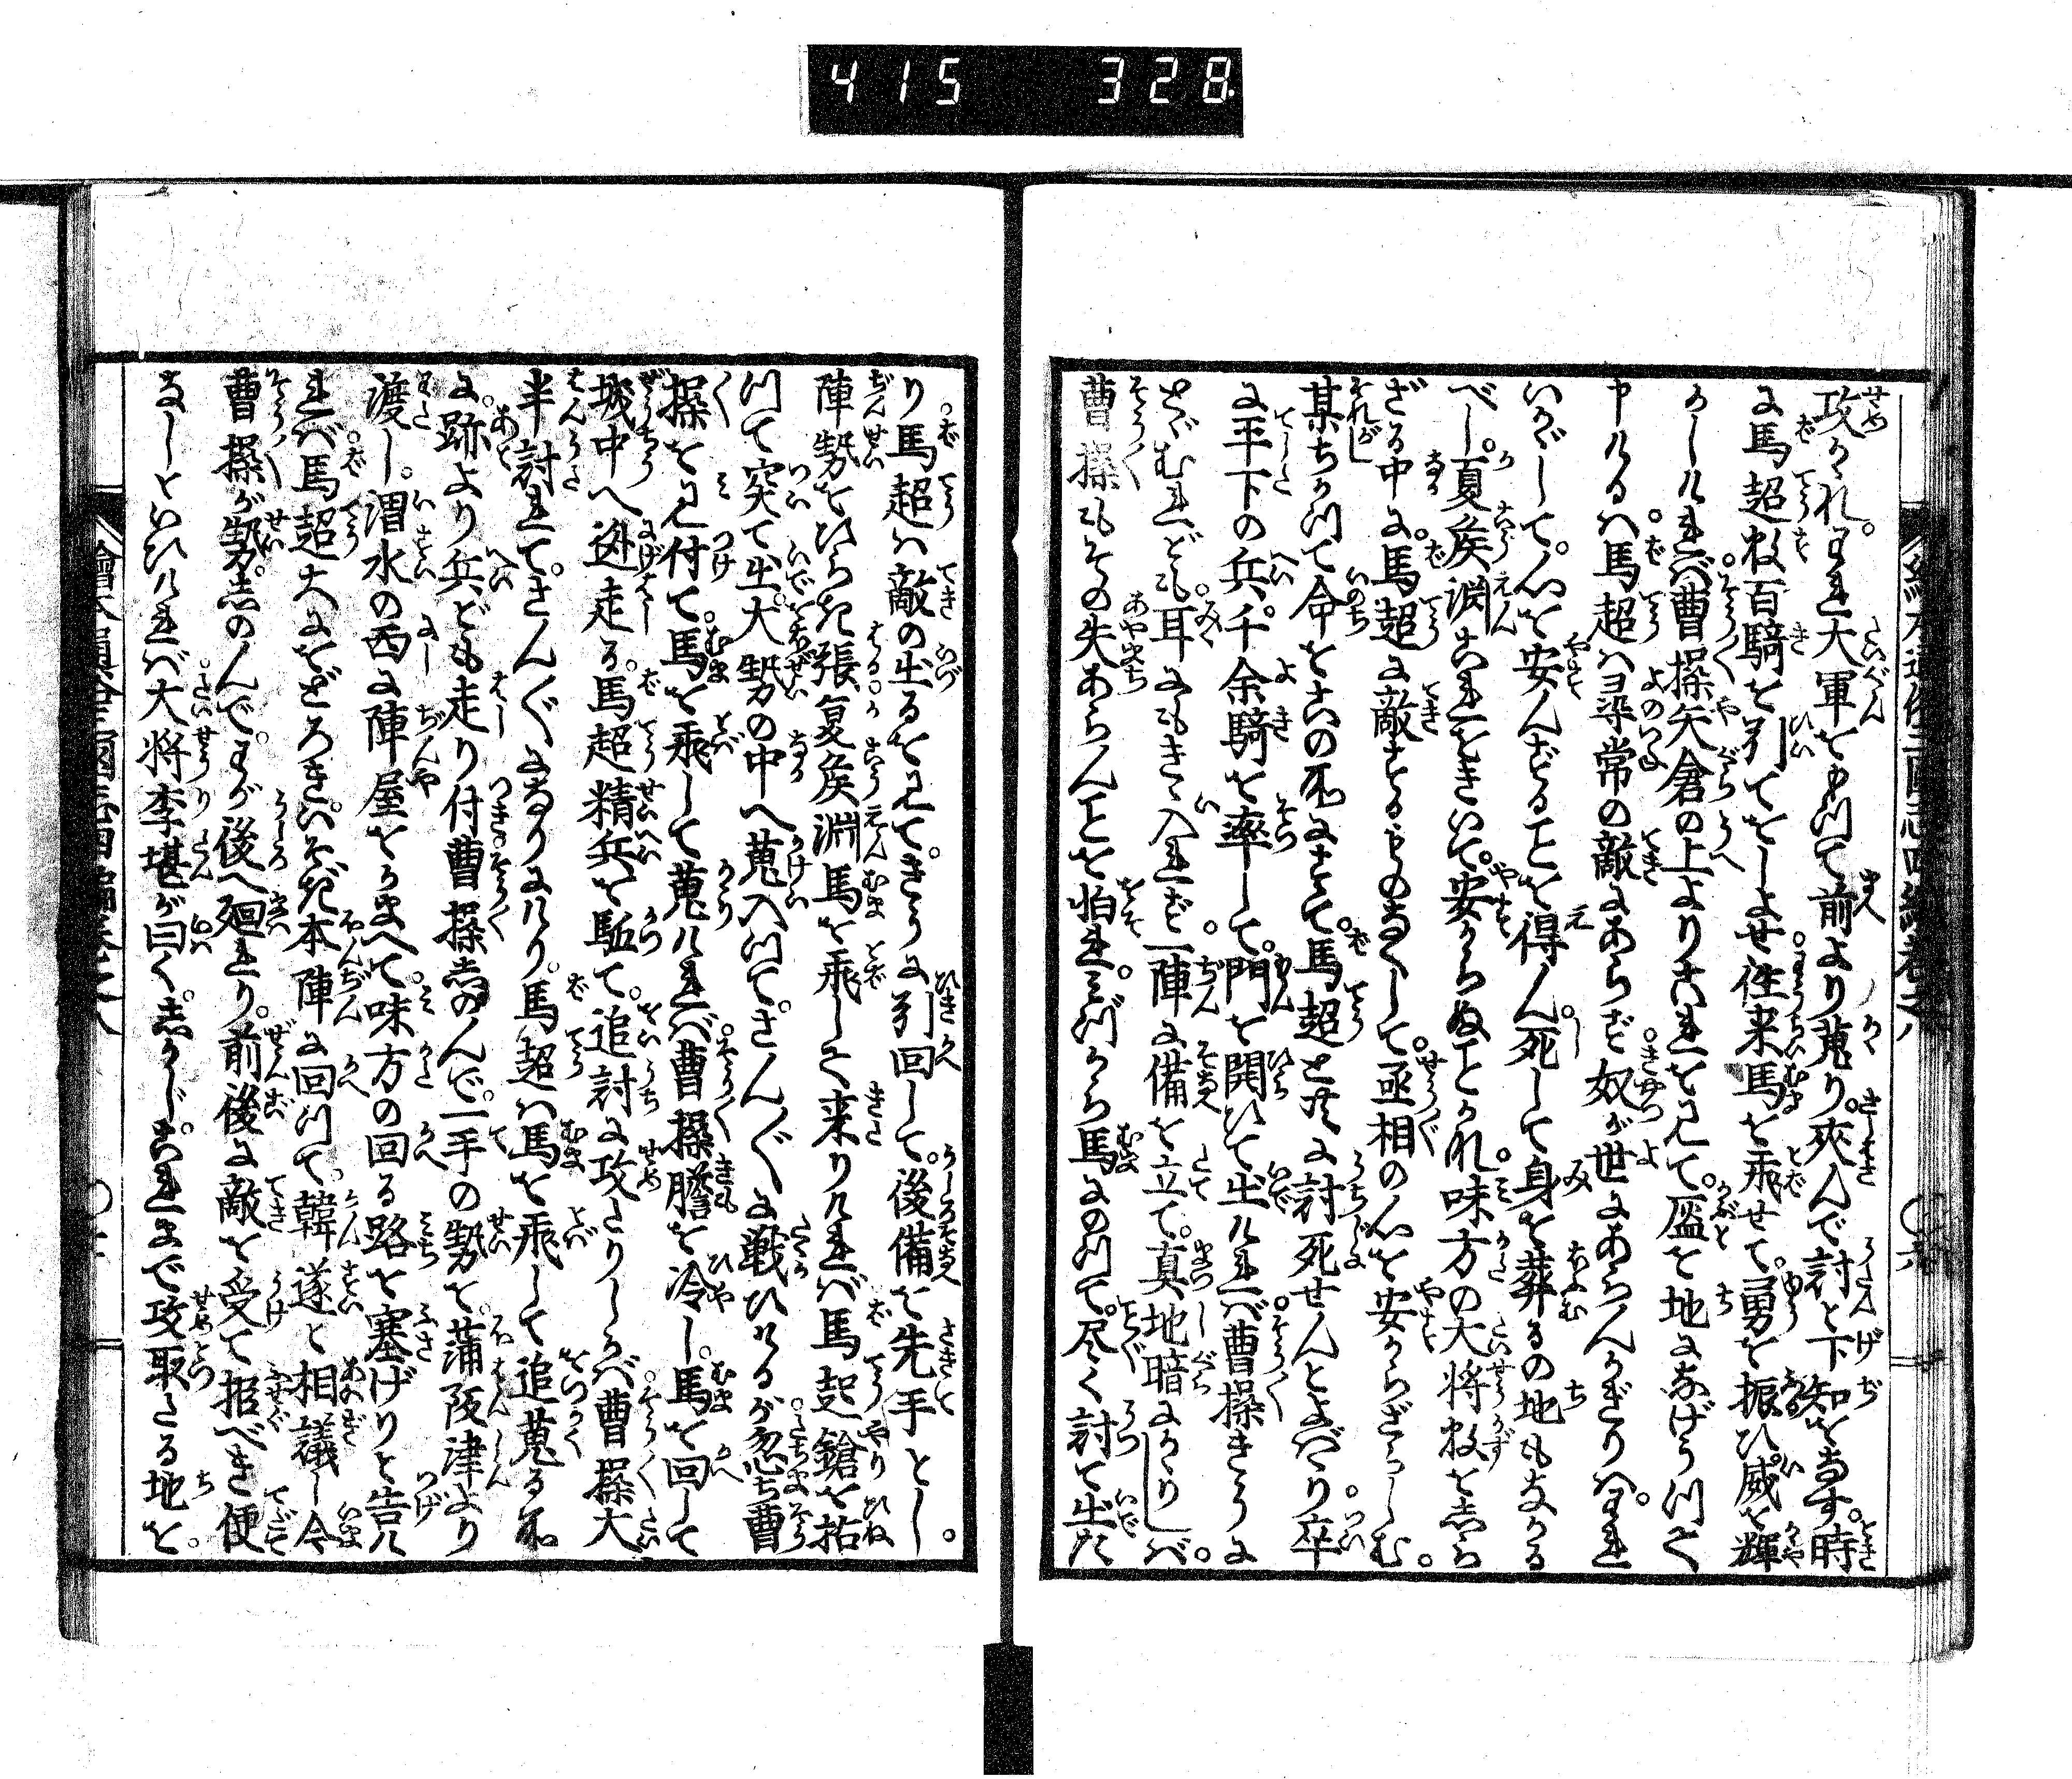 415 328
攻かれ。われ大軍をもつて前より蒐り。夾んで討と下知をなす。時
に馬超数百騎を引てをしよせ往来馬を飛せて。勇を振ひ。威を輝
かしければ。曹操矢倉の上よりこれを見て。盔を地になげうつて
申けるは。馬超は尋常の敵にあらず。奴が世にあらんかぎりは。われ
いかがして。心を安んずることを得ん。死して身を葬るの地もなかる
べし。夏侯渊これをきいて。安からぬことかれ。味方の大将数をしら
ざる中に。馬超に敵するものなくして。丞相の心を安からざらしむ。
某ちかつて命をこの所にすて。馬超と共に討死せんとよばゝり。卒
に手下の兵。千余騎を率して。門を開ひて出ければ。曹操きうに
とゞむれども。耳にもきゝ入れず。一陣に備を立て。真地暗にかゝりしかば。
曹操もその失あらんことを怕れ。みづから馬にのつて。尽く討て出た
り。馬超は敵の出るを見て。きうに引回して。後備を先手とし。
陣勢をひらき張。夏侯淵馬を飛して来りければ。馬超鎗を拈
つて突て出。大勢の中へ蒐入つて。さん〴〵に戦ひけるが。忽ち曹
操を見付て。馬を飛して蒐ければ。曹操膽を冷し。馬を回して
城中へ逃走る。馬超精兵を駈て。追討に攻たりしかば。曹操大
半討れて。さん〴〵になりにけり。馬超は馬を飛して追蒐る所
に。跡より兵ども走り付。曹操しのんで。一手の勢を。蒲阪津より
渡し。渭水の西に陣屋をかまへて。味方の回る路を塞げりと告け
れば。馬超大にをどろき。いそぎ本陣に回つて。韓遂と相議し。今
曹操が勢。しのんで。わが後へ廻れり。前後に敵を受て拒べき便
なしといひければ。大将李堪が曰く。しかじ。これまで攻取たる地を。